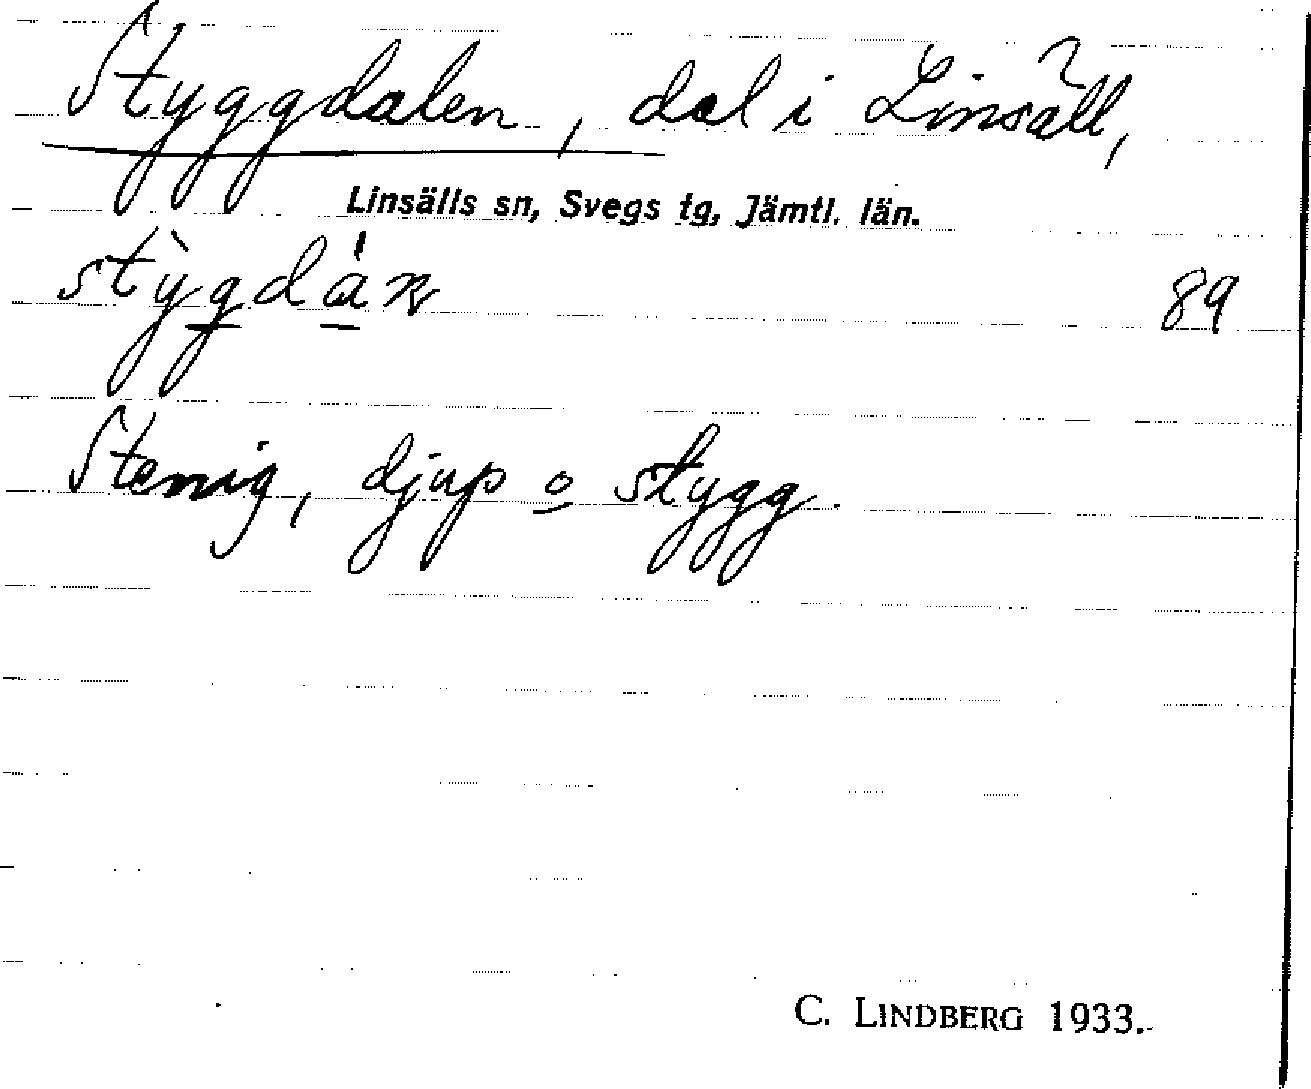 Styggdalen, dal i Linsäll,
Linsälls sn, Svegs tg, Jämtl. län.
89
Stenig, djup o stygg.
C. LINDBERG 1933.